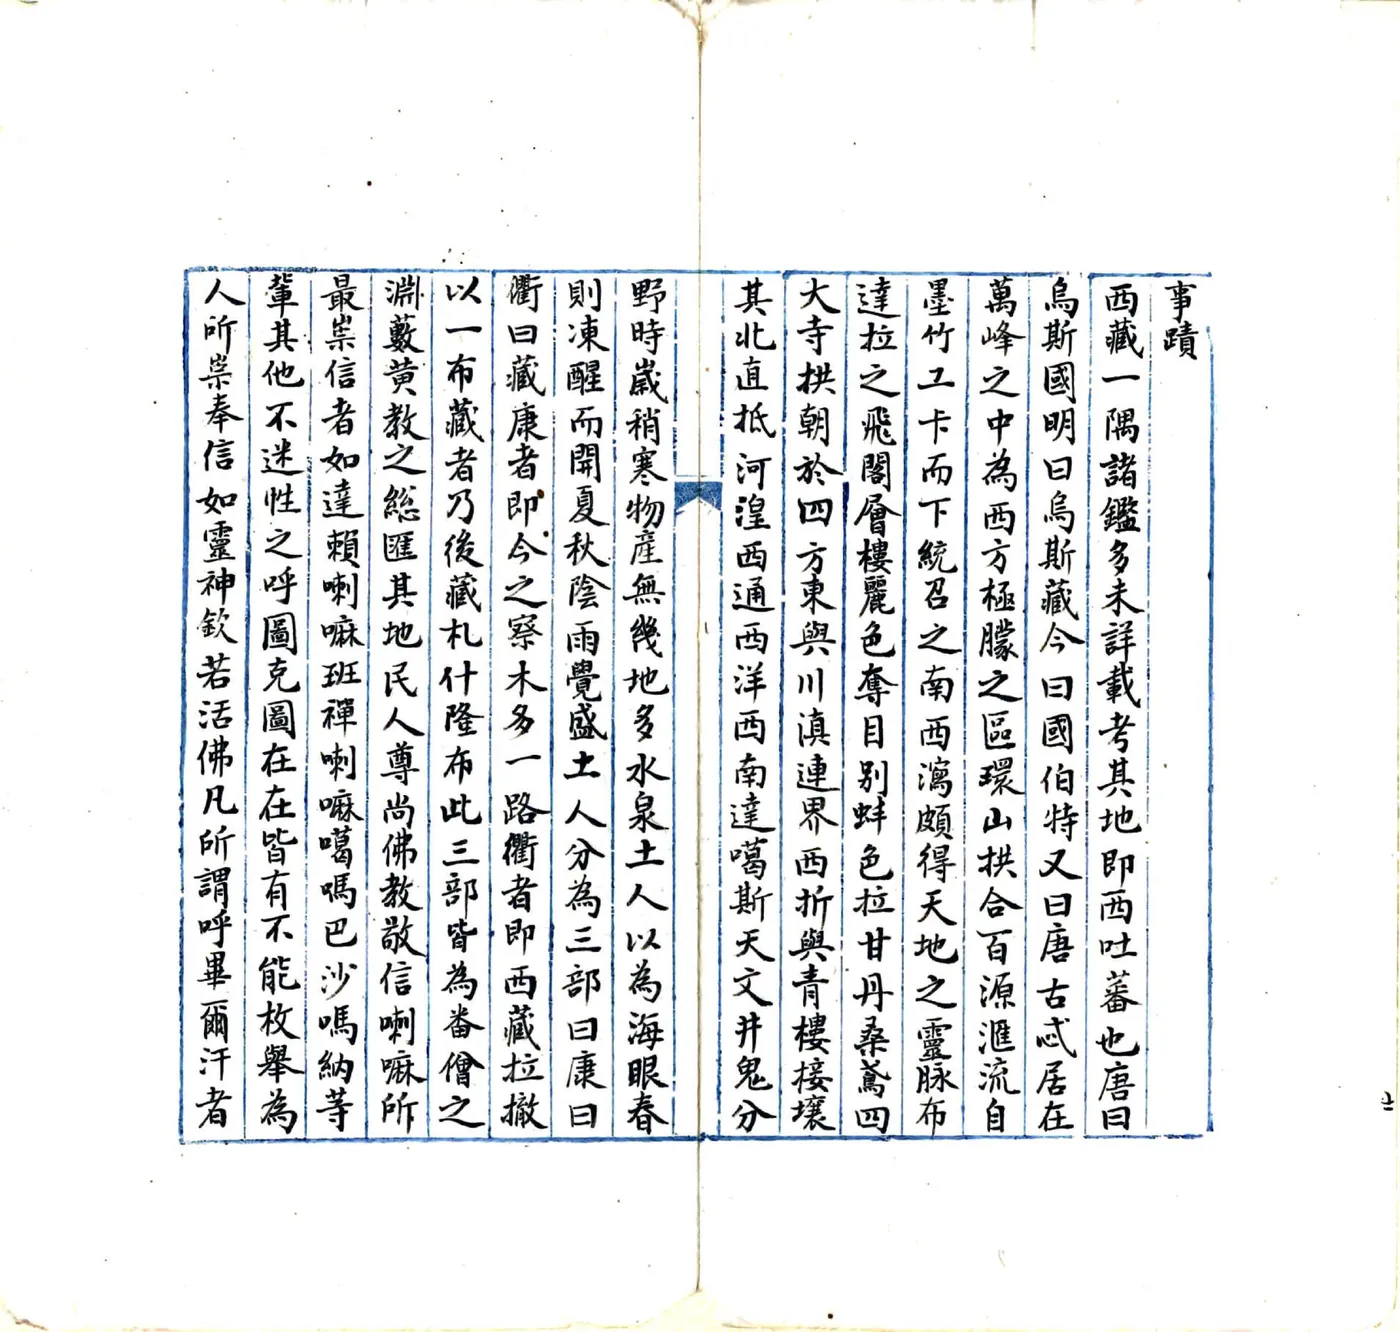 事蹟
西藏一隅諸鑑多未詳載考其地即西吐蕃也唐曰
烏斯國明曰烏斯藏今曰國伯特又曰唐古忒居在
萬峰之中為西方極朦之區環山拱合百源滙流自
墨竹工卡而下統召之南西瀉頗得天地之靈脉布
達拉之飛閣層樓麗色奪目别蚌色拉甘丹桑鳶四
大寺拱朝於四方東與川滇連界西折與青樓接壤
其北直抵河湟西通西洋西南達噶斯天文井鬼分
野時嵗稍寒物產無幾地多水泉土人以為海眼春
則凍醒而開夏秋陰雨覺盛土人分為三部曰康曰
衢曰藏康者即今之察木多一路衢者即西藏拉撤
以一布藏者乃後藏札什隆布此三部皆為番僧之
淵藪黄教之總匯其地民人尊尚佛教敬信喇嘛所
最崇信者如達賴喇嘛班禪喇嘛噶嗎巴沙嗎納等
輩其他不迷性之呼圖克圖在在皆有不能枚舉為
人所崇奉信如靈神欽若活佛凡所謂呼畢爾汗者